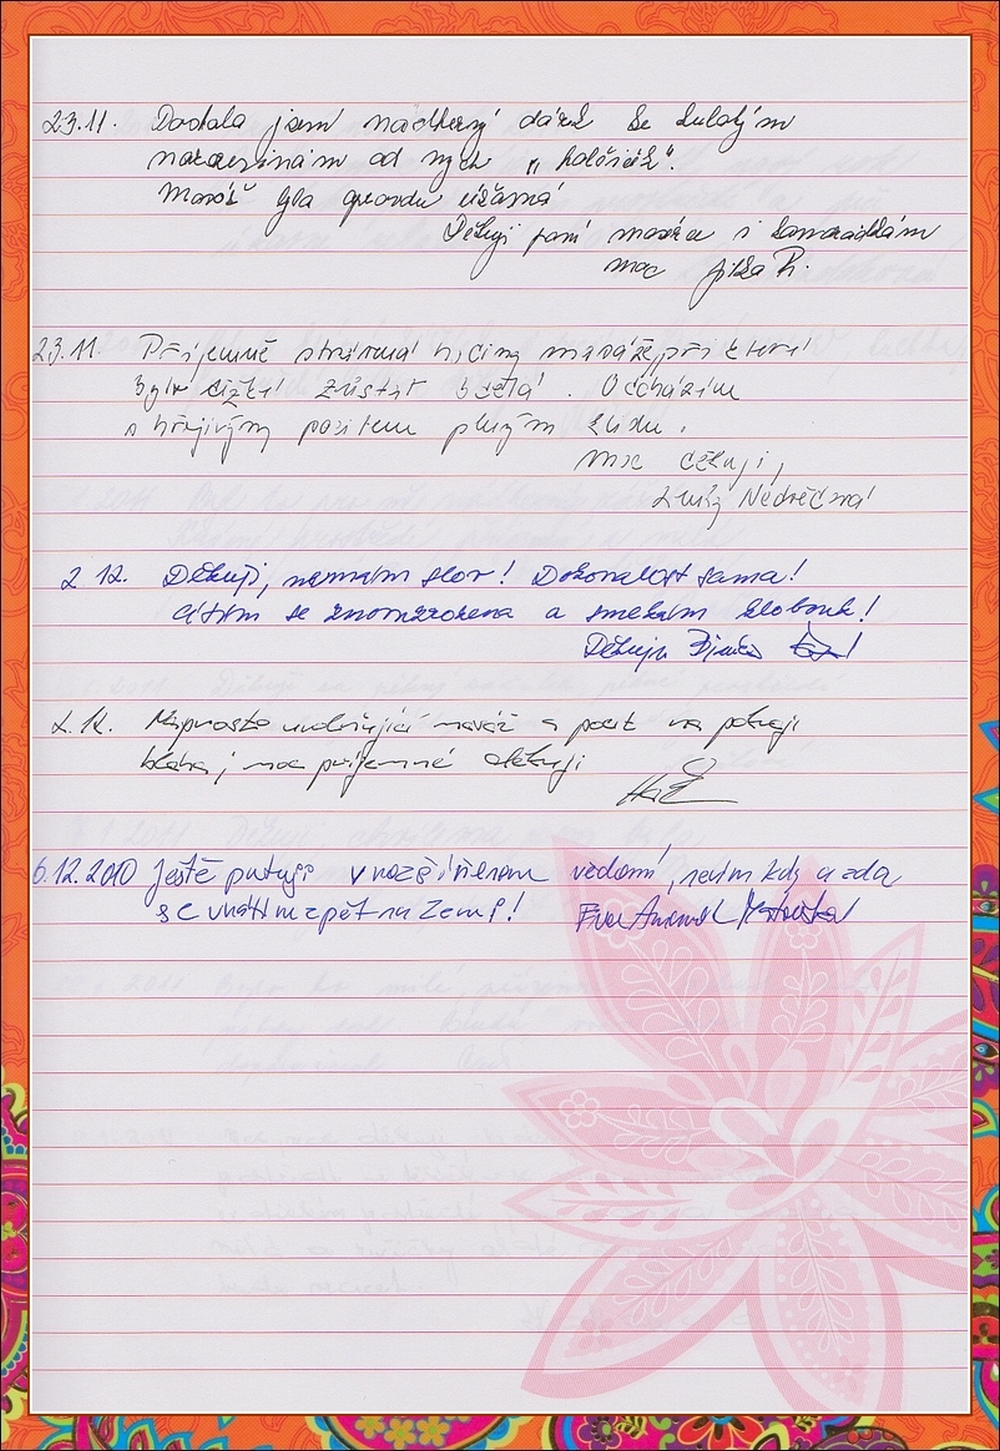 23.11. Dostala jsem nádherný dárek ke kulatým
narozeninám od mých „holčiček“.
Masáž byla opravdu úžasná
Děkuji paní masérce i kamarádkám
moc Jitka P.
23.11. Příjemně strávená hodina masáže, při které
bylo těžké zůstat bdělá. Odcházím
s hřejivým pocitem plným klidu.
Moc děkuji,
2.12. Děkuji, nemám slov! Dokonalost sama!
Cítím se znovuzrozena a smekám klobouk!
Děkuju
2.12. Naprosto uvolňující masáž a pocit na pokraji
blaha, moc příjemné děkuji
6.12.2010 Ještě putuji v rozšířeném vědomí, nevím kdy a zda
se vrátím zpět na Zemi! Eva